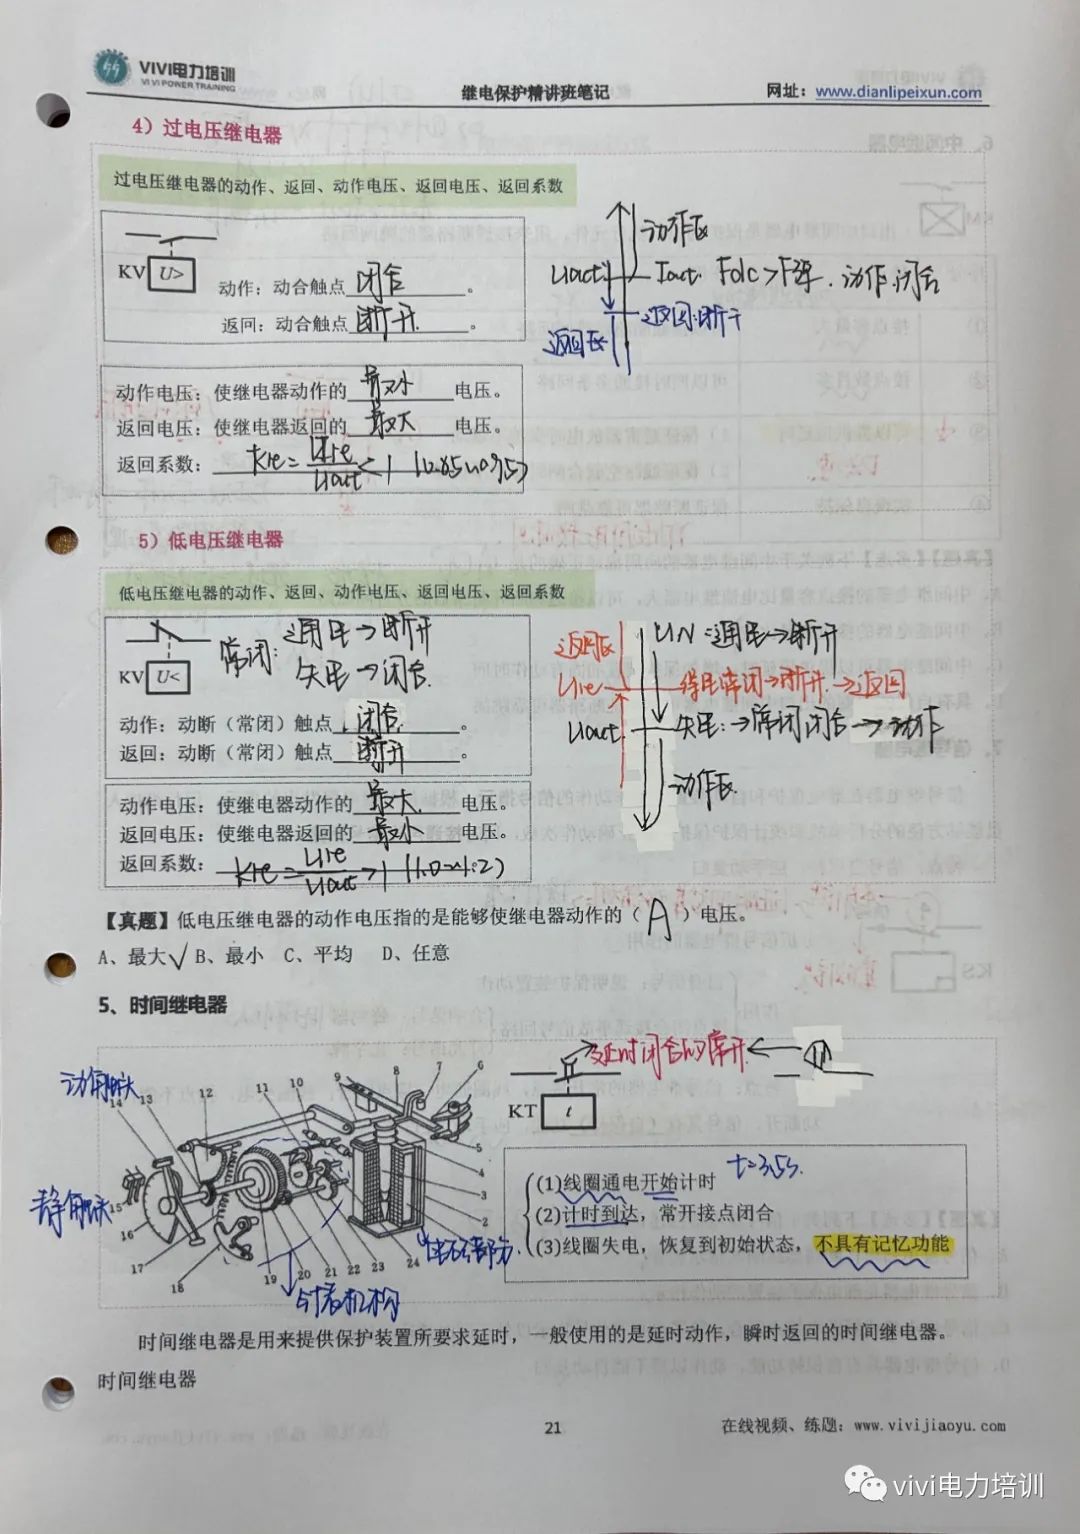 VIVI电力培训
VI VI POWER TRAINING
继电保护精讲班笔记
网址：www.dianlipeixun.com
4）过电压继电器
过电压继电器的动作、返回、动作电压、返回电压、返回系数
KV U>
动作：动合触点 闭合 。
返回：动合触点 断开 。
动作区
Uact Fact. Fdc>F弹. 动作.闭合
返回:断开
返回区
动作电压：使继电器动作的 最小 电压。
返回电压：使继电器返回的 最大 电压。
返回系数： Kre=Ure/Uact<1 (0.85~0.95)
5）低电压继电器
低电压继电器的动作、返回、动作电压、返回电压、返回系数
KV U<
常闭：通电→断开
失电→闭合.
动作：动断（常闭）触点 闭合 。
返回：动断（常闭）触点 断开 。
返回区
UN:通电→断开
Ure 得电常闭→断开.→返回
Uact 失电:→常闭闭合→动作
动作区.
动作电压：使继电器动作的 最大 电压。
返回电压：使继电器返回的 最小 电压。
返回系数： Kre=Ure/Uact>1 (1.0~1.2)
【真题】低电压继电器的动作电压指的是能够使继电器动作的（ A ）电压。
A、最大√ B、最小 C、平均 D、任意
5、时间继电器
动触头
静触头
钟表机构
电磁部分.
14 13 12 11 10 9 8 7 6
5
4
3
2
1
15
16
17
18
19 20 21 22 23 24
延时闭合的常开.
KT t
t=3.5s.
(1)线圈通电开始计时
(2)计时到达，常开接点闭合
(3)线圈失电，恢复到初始状态，不具有记忆功能
时间继电器是用来提供保护装置所要求延时，一般使用的是延时动作，瞬时返回的时间继电器。
时间继电器
21
在线视频、练题：www.vivijiaoyu.com
vivi电力培训